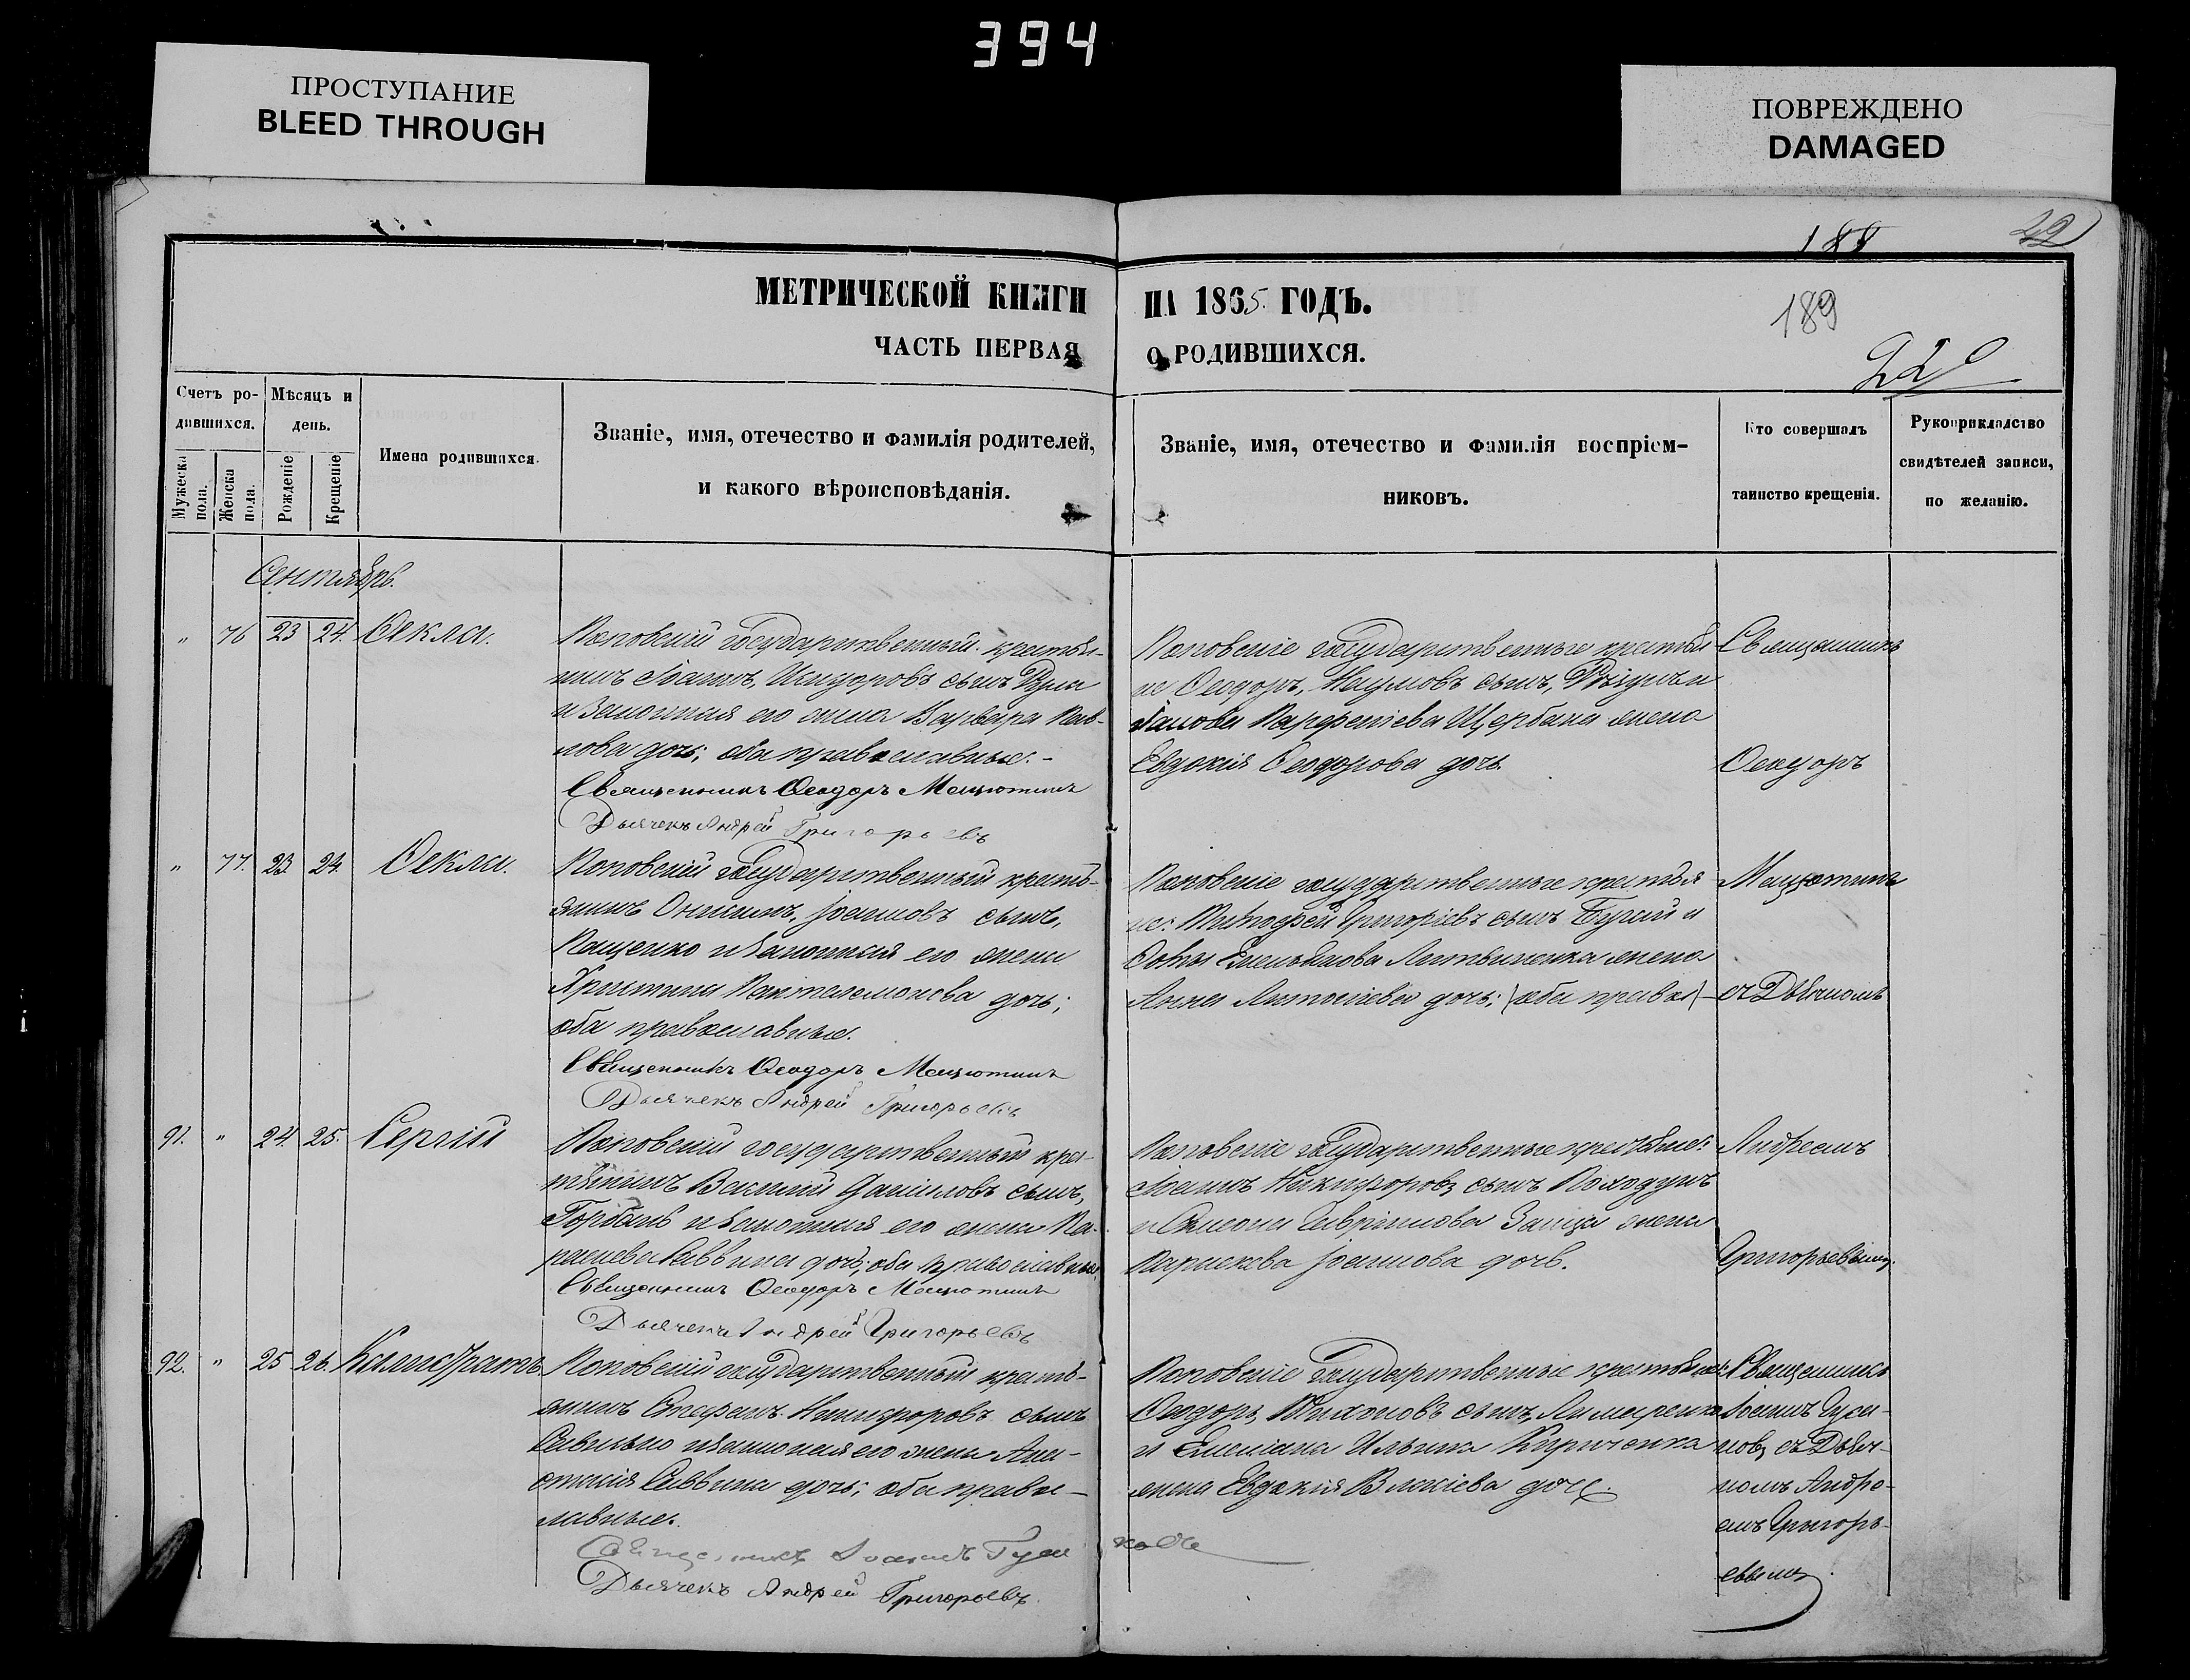 394
ПРОСТУПАНИЕ
BLEED THROUGH
ПОВРЕЖДЕНО
DAMAGED
188
189
МЕТРИЧЕСКОЙ КНИГИ НА 1865 ГОДЪ.
ЧАСТЬ ПЕРВАЯ О РОДИВШИХСЯ.
Счетъ ро-
дившихся.
Мужеска
пола.
Женска
пола.
Мѣсяцъ и
день.
Рожденіе
Крещеніе
Имена родившихся.
Званіе, имя, отечество и фамилія родителей,
и какого вѣроисповѣданія.
Званіе, имя, отечество и фамилія воспріем-
никовъ.
Кто совершалъ
таинство крещенія.
Рукоприкладство
свидѣтелей записи,
по желанію.
Сентябрь.
" 76 23 24. Ѳекла.
Поповскій государственный крестья-
нинъ Іоаннъ, сынъ
и законная его жена Варвара Пав-
лова дочь; оба православные.-
Священникъ Ѳеодоръ
Дьячекъ Андрей Григорьевъ
Поповскіе государственные крестья-
не Ѳеодоръ, Наумовъ сынъ,
Парфеніева Щербака жена
Евдокія Ѳеодорова дочь.
Священникъ
Ѳеодоръ
" 77. 23. 24. Ѳекла.
Поповскій государственный кресть-
янинъ Онисимъ, Іоанновъ сынъ,
Пащенко и законная его жена
Христина Пантелемонова дочь;
оба православные.
Священникъ Ѳеодоръ
Дьячекъ Андрей Григорьевъ
Поповскіе государственные крестья-
не: Тимоѳей Григоріевъ сынъ и
Емельянова Литвиненка жена
Анна дочь; (оба правосл)
съ Дьячкомъ
91. " 24. 25. Сергій
Поповскій государственный кре-
стьянинъ Василий Даніиловъ сынъ,
Горбань и законная его жена Па-
раскева Саввина дочь; оба православные.
Священникъ Ѳеодоръ
Дьячекъ Андрей Григорьевъ
Поповскіе государственные крестьяне:
Іоаннъ Никифоровъ сынъ
и Гавріилова Заица жена
Параскева Іоаннова дочь.
Андреемъ
Григорьевымъ.
92. " 25 26. Калистратъ
Поповскій государственный кресть-
янинъ Стефанъ Никифоровъ сынъ
и законная его жена Ана-
стасія Саввина дочь; оба право-
славные.
Священникъ Іоаннъ Гусаковъ
Дьячекъ Андрей Григорьевъ.
Поповскіе государственные крестьяне:
Ѳеодоръ, Тихоновъ сынъ, Лимаренко
и Ильина Кириченка
жена Евдокія Власіева дочь.
Священникъ
Іоаннъ Гуса-
ковъ съ Дьяч-
комъ Андре-
емъ Григорь-
евымъ